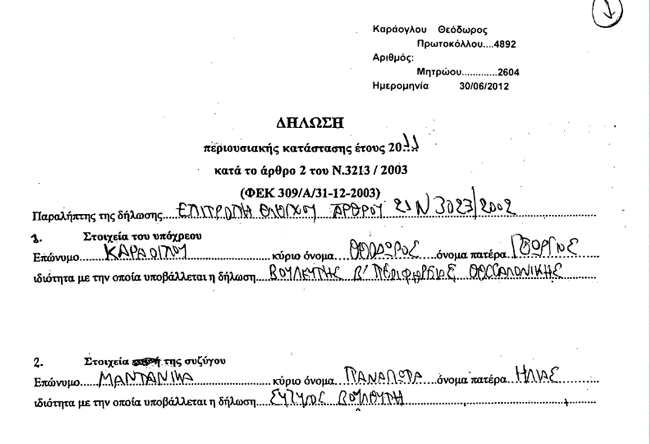 1
Καράογλου Θεόδωρος
Πρωτοκόλλου....4892
Αριθμός:
Μητρώου.............2604
Ημερομηνία 30/06/2012
ΔΗΛΩΣΗ
περιουσιακής κατάστασης έτους 2011
κατά το άρθρο 2 του Ν.3213 / 2003
(ΦΕΚ 309/Α/31-12-2003)
Παραλήπτης της δήλωσης....ΕΠΙΤΡΟΠΗ ΕΛΕΓΧΟΥ ΑΡΘΡΟΥ 21 Ν 3023/2002
1. Στοιχεία του υπόχρεου
Επώνυμο......ΚΑΡΑΟΓΛΟΥ......κύριο όνομα ΘΕΟΔΩΡΟΣ ...όνομα πατέρα ΓΕΩΡΓΙΟΣ
ιδιότητα με την οποία υποβάλλεται η δήλωση...ΒΟΥΛΕΥΤΗΣ Β/ ΠΕΡΙΦΕΡΕΙΑΣ ΘΕΣΣΑΛΟΝΙΚΗΣ
2. Στοιχεία της συζύγου
Επώνυμο....ΜΑΝΤΑΝΙΚΑ......κύριο όνομα ΠΑΝΑΓΙΩΤΑ ...όνομα πατέρα ΗΛΙΑΣ
ιδιότητα με την οποία υποβάλλεται η δήλωση....ΣΥΖΥΓΟΣ ΒΟΥΛΕΥΤΗ